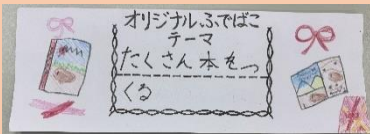 オリジナルふでばこ
テーマ
たくさん本をつ
くる